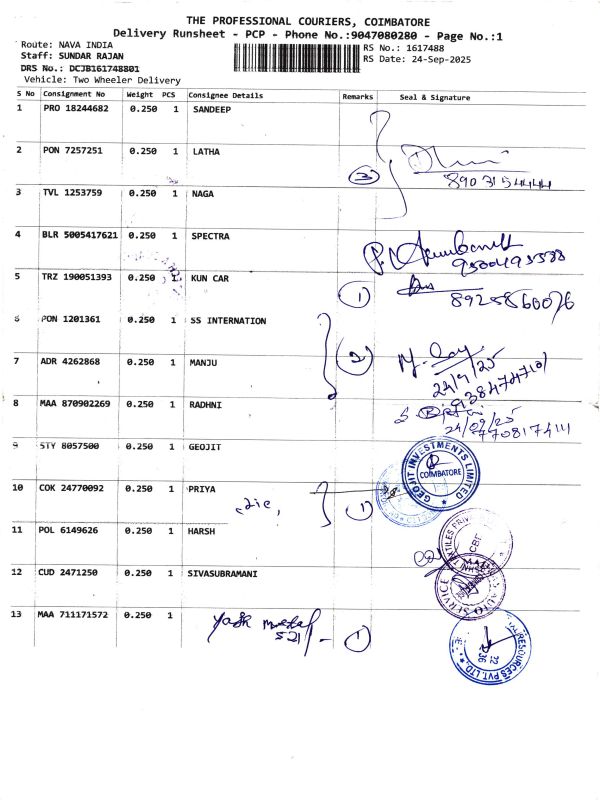 THE PROFESSIONAL COURIERS, COIMBATORE
Delivery Runsheet - PCP - Phone No.:9047080280 - Page No.:1
Route: NAVA INDIA
Staff: SUNDAR RAJAN
DRS No.: DCJB161748801
Vehicle: Two Wheeler Delivery
RS No.: 1617488
RS Date: 24-Sep-2025
S No Consignment No Weight PCS Consignee Details Remarks Seal & Signature
1 PRO 18244682 0.250 1 SANDEEP
2 PON 7257251 0.250 1 LATHA
3
8903154444
3 TVL 1253759 0.250 1 NAGA
4 BLR 5005417621 0.250 1 SPECTRA
9500493588
5 TRZ 190051393 0.250 1 KUN CAR
1
8925860076
6 PON 1201361 0.250 1 SS INTERNATION
7 ADR 4262868 0.250 1 MANJU
2
24/9/25
9384747101
8 MAA 870902269 0.250 1 RADHNI
24/09/25
7708174111
9 STY 8057500 0.250 1 GEOJIT
GEOJIT INVESTMENTS LIMITED
COIMBATORE
10 COK 24770092 0.250 1 PRIYA
1
11 POL 6149626 0.250 1 HARSH
12 CUD 2471250 0.250 1 SIVASUBRAMANI
AUTO SERVICE
13 MAA 711171572 0.250 1
521
1
RESOURCES PVT. LTD.